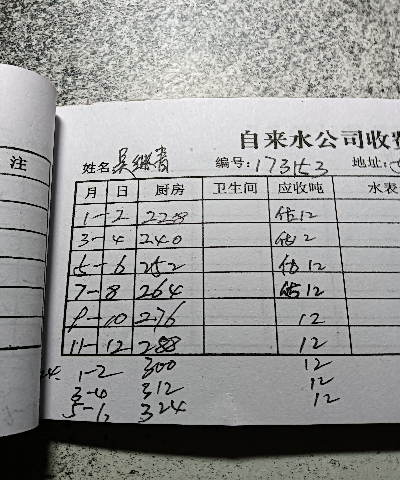 注
自来水公司收
姓名 吴继青 编号:173153 地址:
月 日 厨房 卫生间 应收吨 水表
1-2 228 估12
3-4 240 估12
5-6 252 估12
7-8 264 估12
9-10 276 12
11-12 288 12
1-2 300 12
3-4 312 12
5-6 324 12